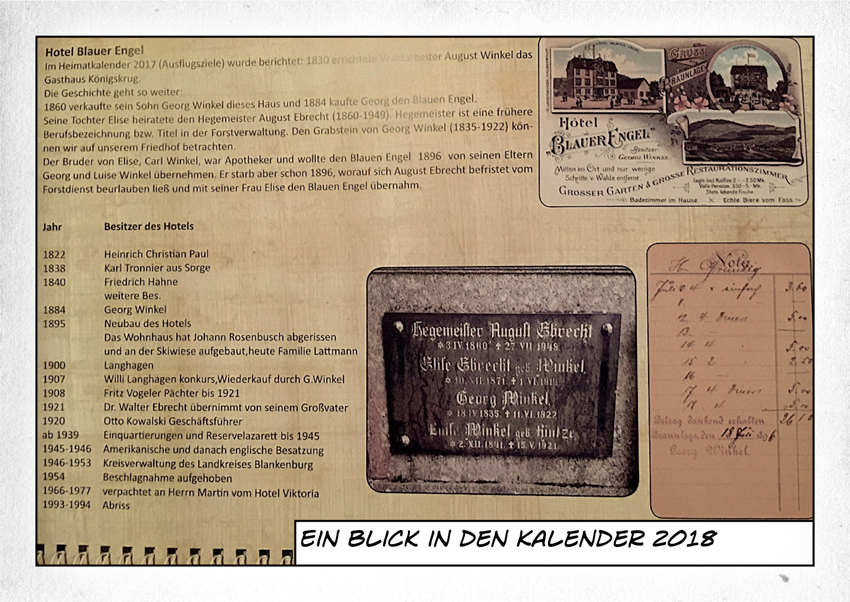 Hotel Blauer Engel
Im Heimatkalender 2017 (Ausflugsziele) wurde berichtet: 1830 errichtete Waldarbeiter August Winkel das
Gasthaus Königskrug.
Die Geschichte geht so weiter:
1860 verkaufte sein Sohn Georg Winkel dieses Haus und 1884 kaufte Georg den Blauen Engel.
Seine Tochter Elise heiratete den Hegemeister August Ebrecht (1860-1949). Hegemeister ist eine frühere
Berufsbezeichnung bzw. Titel in der Forstverwaltung. Den Grabstein von Georg Winkel (1835-1922) kön-
nen wir auf unserem Friedhof betrachten.
Der Bruder von Elise, Carl Winkel, war Apotheker und wollte den Blauen Engel 1896 von seinen Eltern
Georg und Luise Winkel übernehmen. Er starb aber schon 1896, worauf sich August Ebrecht befristet vom
Forstdienst beurlauben ließ und mit seiner Frau Elise den Blauen Engel übernahm.
GRUSS
BRAUNLAGE
Hôtel
"BLAUER ENGEL"
Besitzer:
GEORG WINKEL
Mitten im Ort und nur wenige
Schritte v. Walde entfernt.
GROSSER GARTEN & GROSSE RESTAURATIONSZIMMER
Logis incl. Kaffee 2.- - 2.50 Mk.
Volle Pension 3.50-5.- Mk.
Stets lebende Fische.
Badezimmer im Hause. Echte Biere vom Fass.
Jahr Besitzer des Hotels
1822 Heinrich Christian Paul
1838 Karl Tronnier aus Sorge
1840 Friedrich Hahne
weitere Bes.
1884 Georg Winkel
1895 Neubau des Hotels
Das Wohnhaus hat Johann Rosenbusch abgerissen
und an der Skiwiese aufgebaut,heute Familie Lattmann
1900 Langhagen
1907 Willi Langhagen konkurs,Wiederkauf durch G.Winkel
1908 Fritz Vogeler Pächter bis 1921
1921 Dr. Walter Ebrecht übernimmt von seinem Großvater
1920 Otto Kowalski Geschäftsführer
ab 1939 Einquartierungen und Reservelazarett bis 1945
1945-1946 Amerikanische und danach englische Besatzung
1946-1953 Kreisverwaltung des Landkreises Blankenburg
1954 Beschlagnahme aufgehoben
1966-1977 verpachtet an Herrn Martin vom Hotel Viktoria
1993-1994 Abriss
Hegemeister August Ebrecht
* 3.IV.1860 † 27.VII.1949
Elise Ebrecht geb. Winkel
Georg Winkel
* 18.IV.1835 † 11.VI.1922
geb. Hintze
* 2.XII.1841 † 15.V.1921
Nota
Juli
3.00
5.00
5.00
2.50
5.00
5.00
Betrag dankend erhalten
Braunlage, den 18 Juli 1896
Georg Winkel
EIN BLICK IN DEN KALENDER 2018